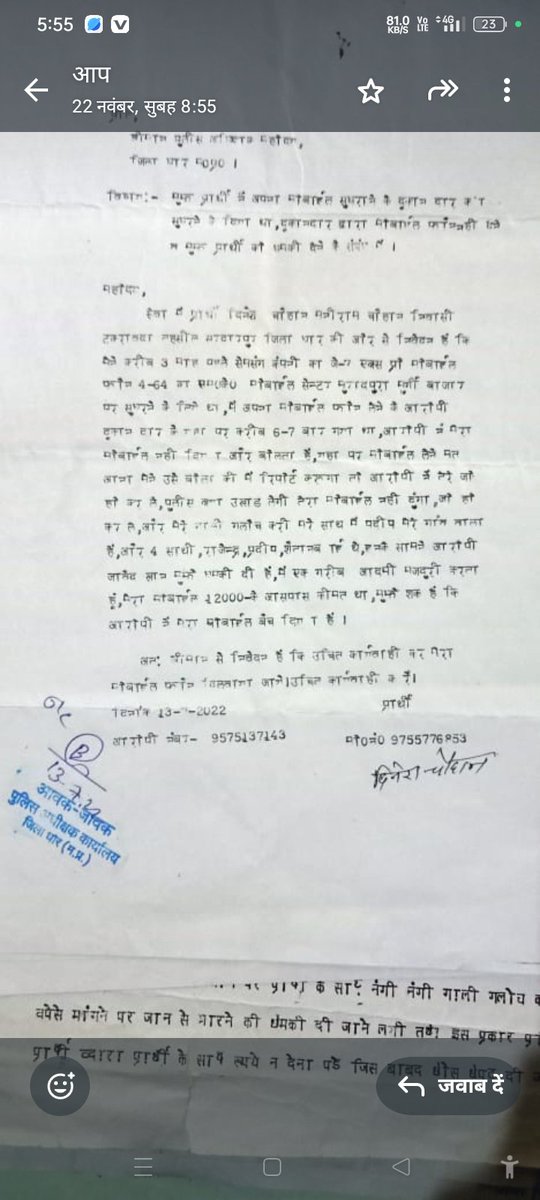 5:55
81.0 KB/S
Vo LTE
4G
23
आप
22 नवंबर, सुबह 8:55
जिला धार म0प्र0 ।
विषय:- मुझ प्रार्थी ने अपना मोबाईल सुधारने के दुकान दार को
सुधरने के दिया था, दुकानदार द्वारा मोबाईल
व मुझ प्रार्थी को धमकी देने के संबंध में ।
महोदय,
सेवा में प्रार्थी दिनेश चौहान मनीराम चौहान निवासी
तहसील सरदारपुर जिला धार की ओर से निवेदन है कि
मैने करीब 3 माह पहले सेमसंग कंपनी का जे-7 एक्स प्रो मोबाईल
फोन 4-64 का मोबाईल सेन्टर बाजार
पर सुधरने के लिये था, में अपना मोबाईल फोन लेने के आरोपी
दुकान दार के पर करीब 6-7 बार गया था, आरोपी ने मेरा
मोबाईल नही दिया और बोलता है, यहा पर मोबाईल लेने मत
आना मैने उसे बोला की में रिपोर्ट करूगा तो आरोपी ने तेरे जो
हो कर ले, पुलीस क्या उखाड लेगी तेरा मोबाईल नही दुंगा, जो हो
कर ले, और मेरे गलोच करी मेरे साथ में प्रदीप मेरे गांव वाला
है, और 4 साथी, राजेन्द्र, प्रदीप, थे, इनके सामने आरोपी
जावेद खान मुझे धमकी दी है, में एक गरीब आदमी मजदुरी करता
हूं, मेरा मोबाईल 12000-के आसपास कीमत था, मुझे शक है कि
आरोपी ने मेरा मोबाईल बेच दिया है ।
अत: श्रीमान से निवेदन है कि उचित कार्यवाही कर मेरा
मोबाईल फोन दिलवाया जावे। उचित कार्यवाही करें।
दिनांक 13-7-2022
प्रार्थी
आरोपी नंबर- 9575137143
मो0नं0 9755776853
दिनेश चौहान
B
13.7.22
आवक-जावक
पुलिस अधीक्षक कार्यालय
जिला धार (म.प्र.)
के साथ नंगी नंगी गाली गलोच
मांगने पर जान से मारने की धमकी दी जाने लगी तथा इस प्रकार
प्रार्थी व्दारा प्रार्थी के साथ रूपये न देना पडे जिस बाबद
जवाब दें